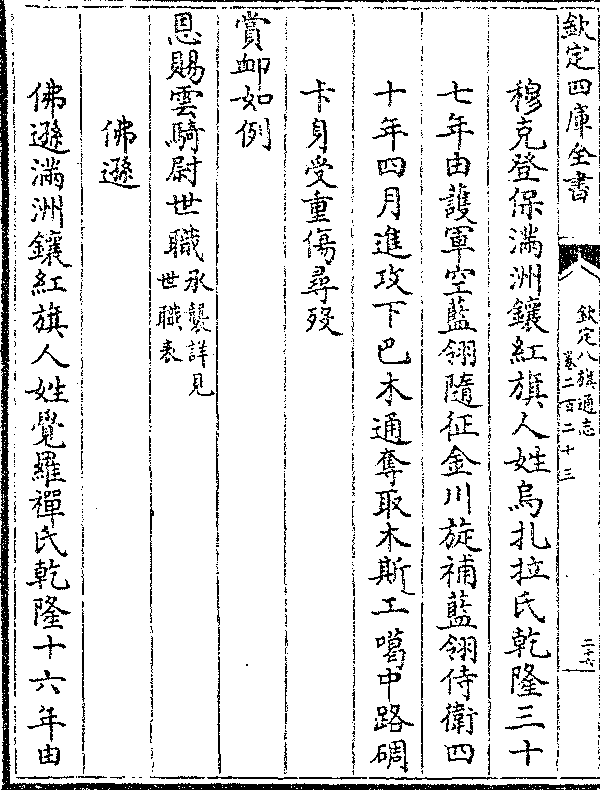 欽定四庫全書
欽定八旗通志
卷二百二十三
二十六
穆克登保滿洲鑲紅旗人姓烏扎拉氏乾隆三十
七年由護軍空藍翎隨征金川旋補藍翎侍衛四
十年四月進攻下巴木通奪取木斯工噶中路碉
卡身受重傷尋殁
賞䘏如例
恩賜雲騎尉世職承襲詳見
世職表
佛遜
佛遜滿洲鑲紅旗人姓覺羅禪氏乾隆十六年由